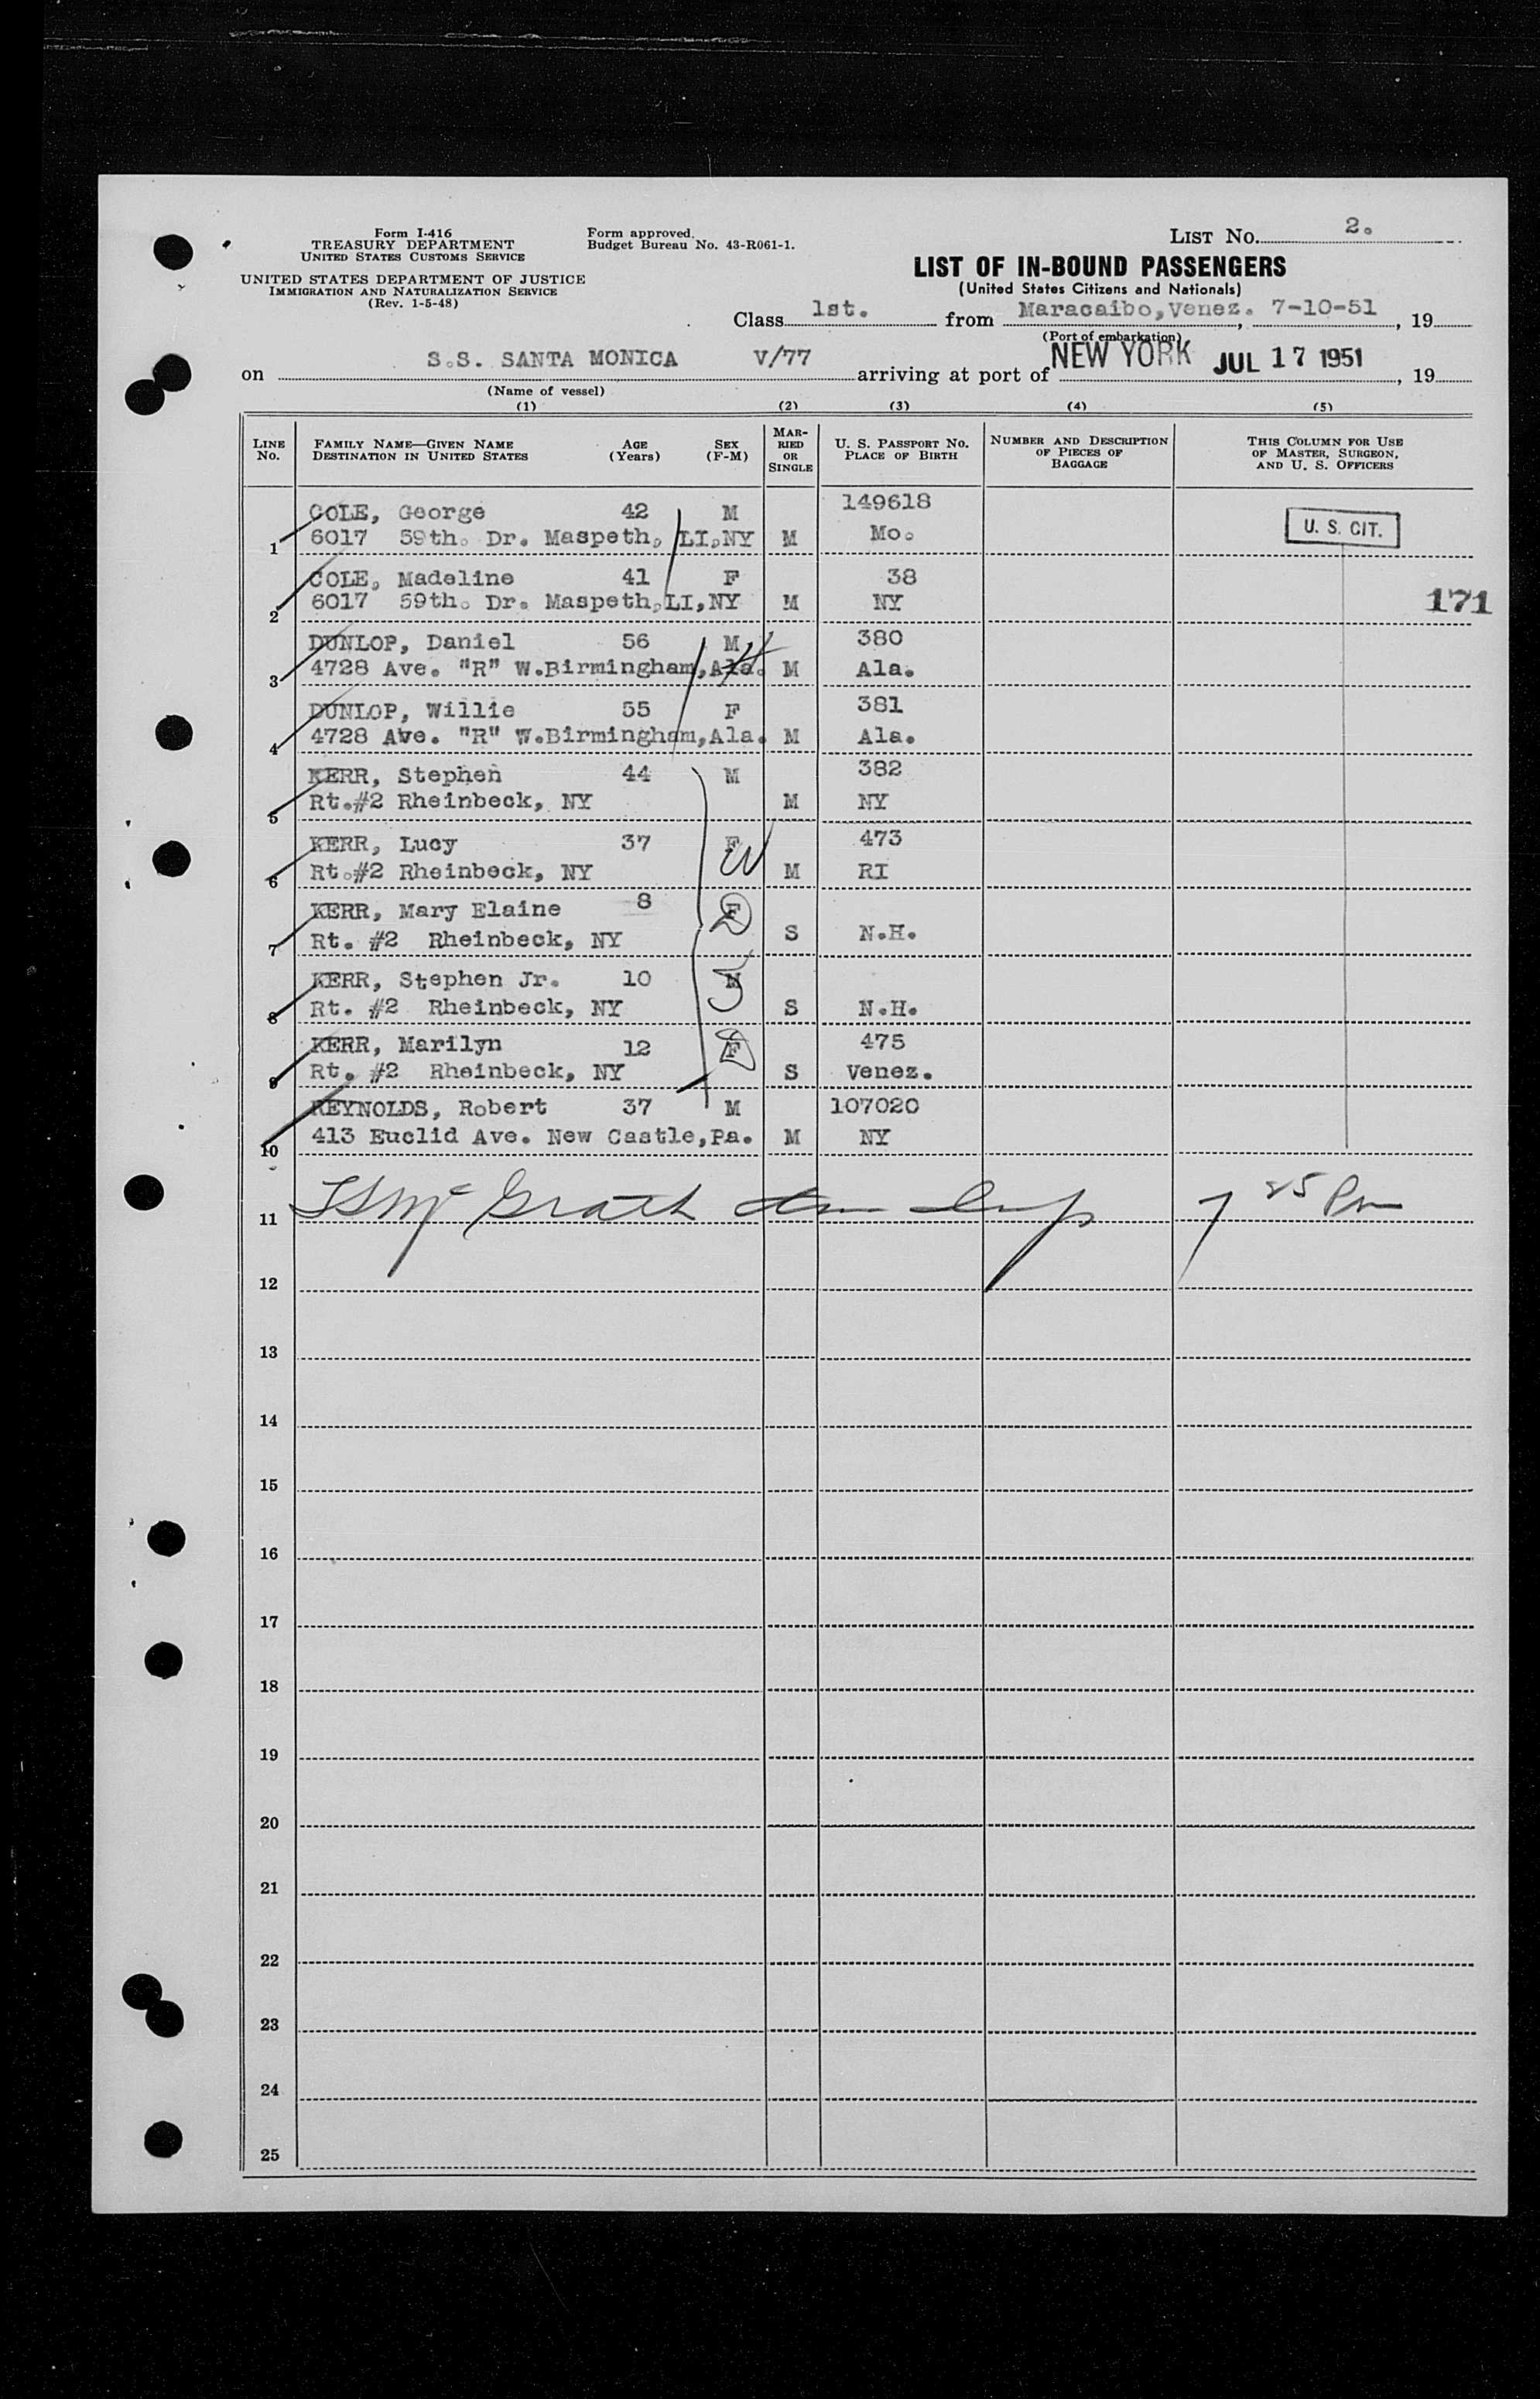 Form I-416
TREASURY DEPARTMENT
UNITED STATES CUSTOMS SERVICE
UNITED STATES DEPARTMENT OF JUSTICE
IMMIGRATION AND NATURALIZATION SERVICE
(Rev. 1-5-48)
Form approved.
Budget Bureau No. 43-R061-1.
LIST No. 2.
LIST OF IN-BOUND PASSENGERS
(United States Citizens and Nationals)
Class 1st. from Maracaibo, Venez. , 7-10-51 , 19
(Port of embarkation)
on S.S. SANTA MONICA V/77 arriving at port of NEW YORK JUL 17 1951 , 19
(Name of vessel)
(1) (2) (3) (4) (5)
LINE No. FAMILY NAME—GIVEN NAME DESTINATION IN UNITED STATES AGE (Years) SEX (F-M) MARRIED OR SINGLE U. S. PASSPORT No. PLACE OF BIRTH NUMBER AND DESCRIPTION OF PIECES OF BAGGAGE THIS COLUMN FOR USE OF MASTER, SURGEON, AND U. S. OFFICERS
COLE, George 42 M 149618
1 6017 59th. Dr. Maspeth, LI,NY M Mo. U. S. CIT.
COLE, Madeline 41 F 38
2 6017 59th. Dr. Maspeth,LI,NY M NY 171
DUNLOP, Daniel 56 M 380
3 4728 Ave. "R" W.Birmingham,Ala. M Ala.
DUNLOP, Willie 55 F 381
4 4728 Ave. "R" W.Birmingham,Ala. M Ala.
KERR, Stephen 44 M 382
5 Rt.#2 Rheinbeck, NY M NY
KERR, Lucy 37 F 473
6 Rt.#2 Rheinbeck, NY M RI
KERR, Mary Elaine 8 F
7 Rt. #2 Rheinbeck, NY S N.H.
KERR, Stephen Jr. 10 M
8 Rt. #2 Rheinbeck, NY S N.H.
KERR, Marilyn 12 F 475
9 Rt. #2 Rheinbeck, NY S Venez.
REYNOLDS, Robert 37 M 107020
10 413 Euclid Ave. New Castle,Pa. M NY
11 McGrath Insp 7 25 Pm
12
13
14
15
16
17
18
19
20
21
22
23
24
25